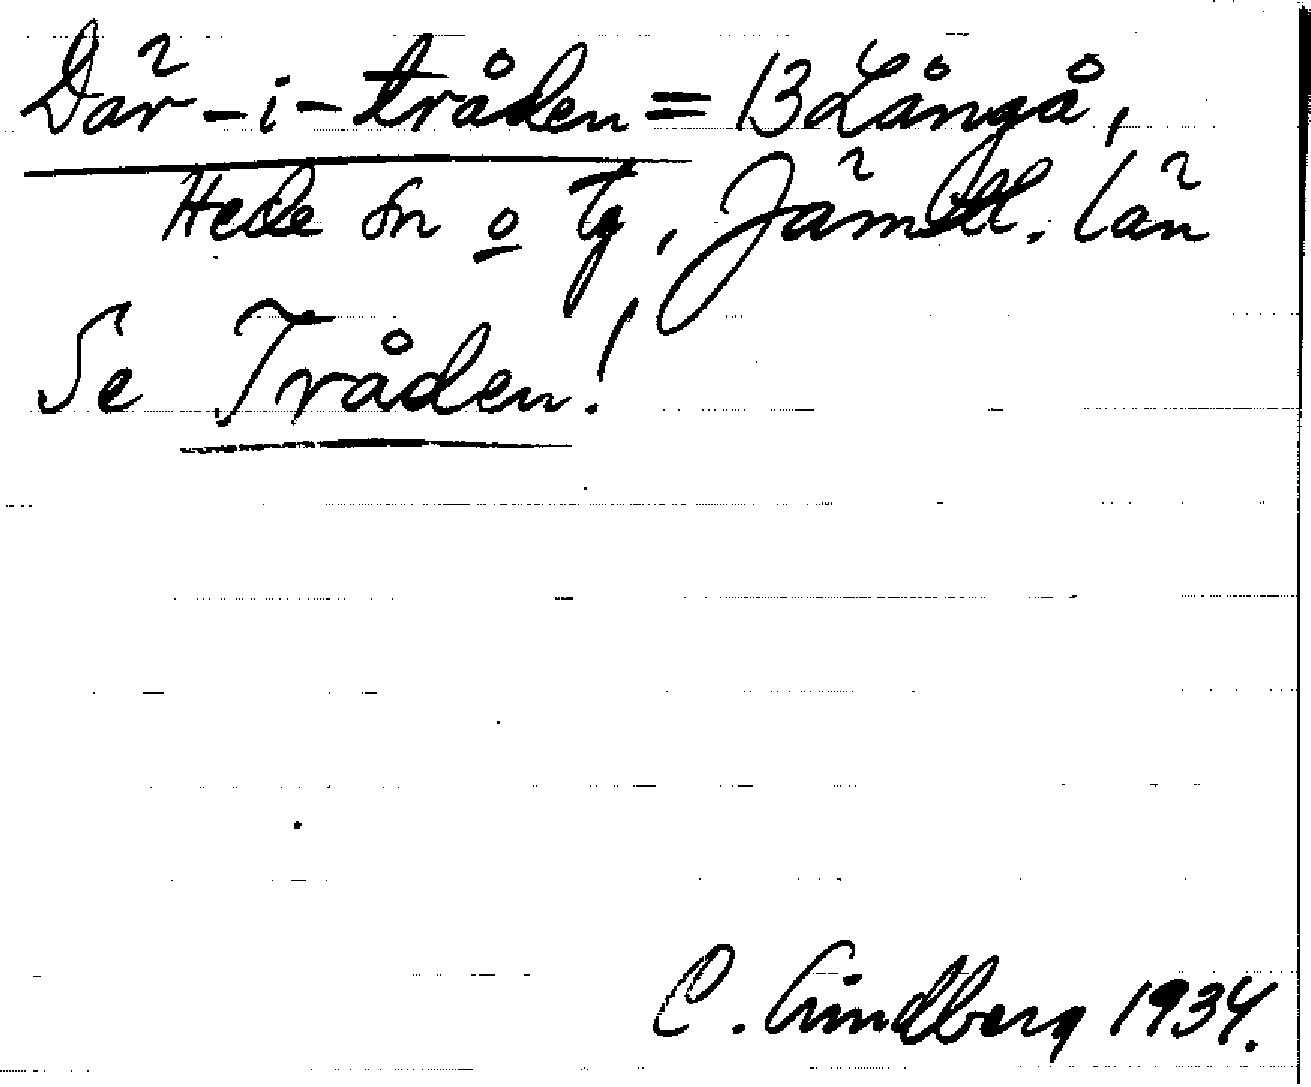 Där-i-tråden = B Långå,
Hede sn o Tg, Jämtl. län
Se Tråden!
C. Lindberg 1934.